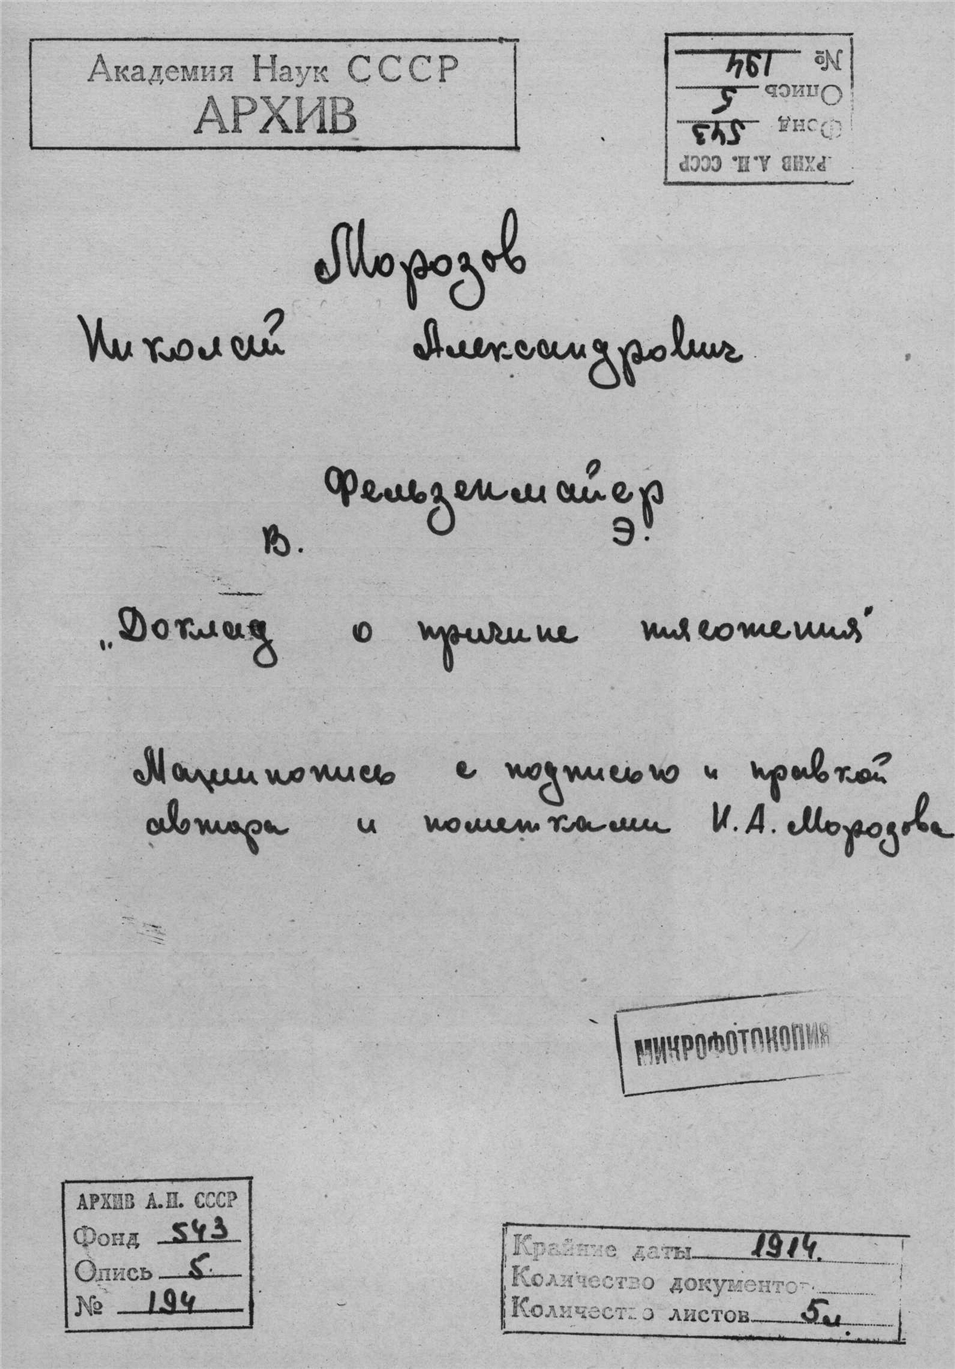 Академия Наук СССР
АРХИВ
№ 194
Опись 5
Фонд 543
АРХИВ А.Н. СССР
Морозов
Николай Александрович
Фельзенмайер
В. Э.
„Доклад о причине тяготения"
Машинопись с подписью и правкой
автора и пометками Н.А. Морозова
МИКРОФОТОКОПИЯ
АРХИВ А.Н. СССР
Фонд 543
Опись 5.
№ 194
Крайние даты 1914.
Количество документов
Количество листов 5л.